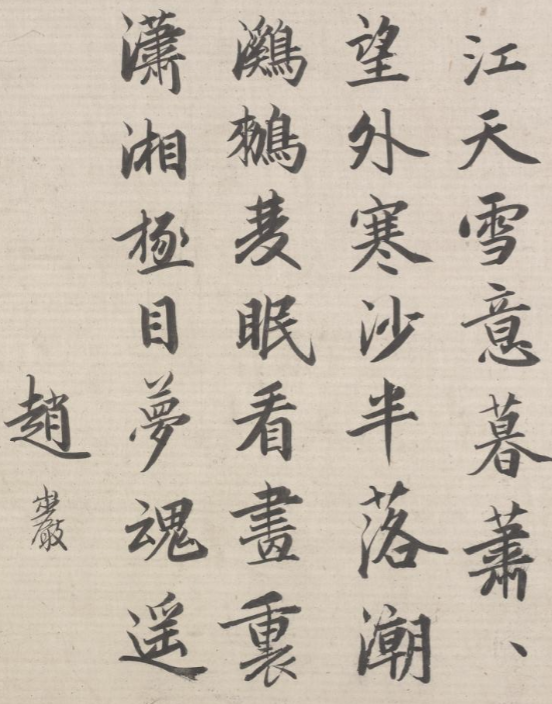 江天雪意暮蕭、
望外寒沙半落潮
鸂鶒眠看畫裏
瀟湘極目夢魂遥
趙巖